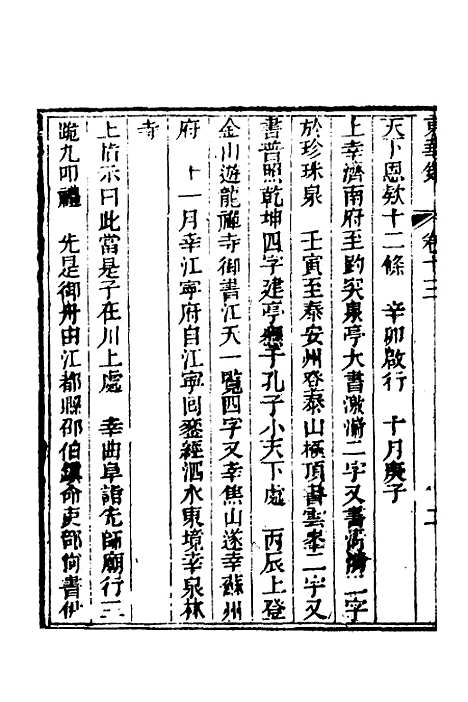 東華錄 卷十三
天下恩欵十二條 辛卯啟行 十月庚子
上幸濟南府至趵突泉亭大書激湍二字又書二字
於珍珠泉 壬寅至泰安州登泰山極頂書雲峯二字又
書普照乾坤四字建亭懸于孔子小天下處 丙辰上登
金山遊龍禪寺御書江天一覽四字又幸焦山遂幸蘇州
府 十一月幸江寧府自江寧回鑾經泗水東境幸泉林
寺
上指示曰此當是子在川上處 幸曲阜詣先師廟行三
跪九叩禮 先是御舟由江都縣邵伯鎮命吏部尚書伊